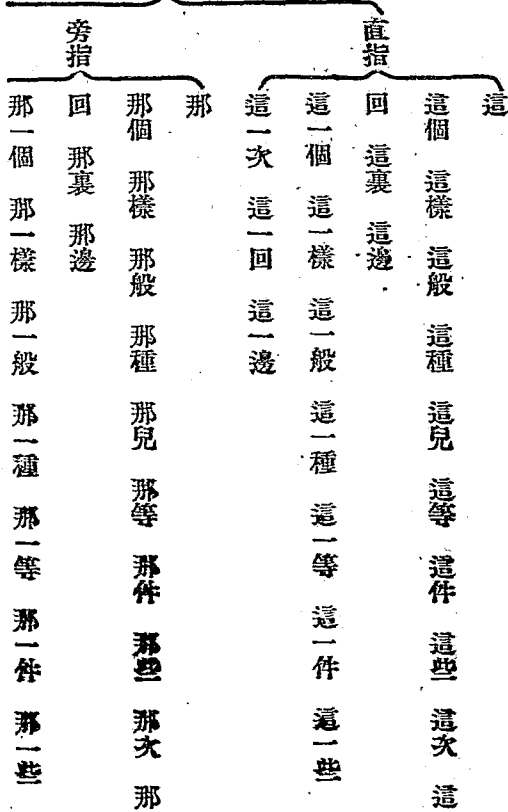 直指
這
這個 這樣 這般 這種 這兒 這等 這件 這些 這次 這
回 這裏 這邊
這一個 這一樣 這一般 這一種 這一等 這一件 這一些
這一次 這一回 這一邊
旁指
那
那個 那樣 那般 那種 那兒 那等 那件 那些 那次 那
回 那裏 那邊
那一個 那一樣 那一般 那一種 那一等 那一件 那一些